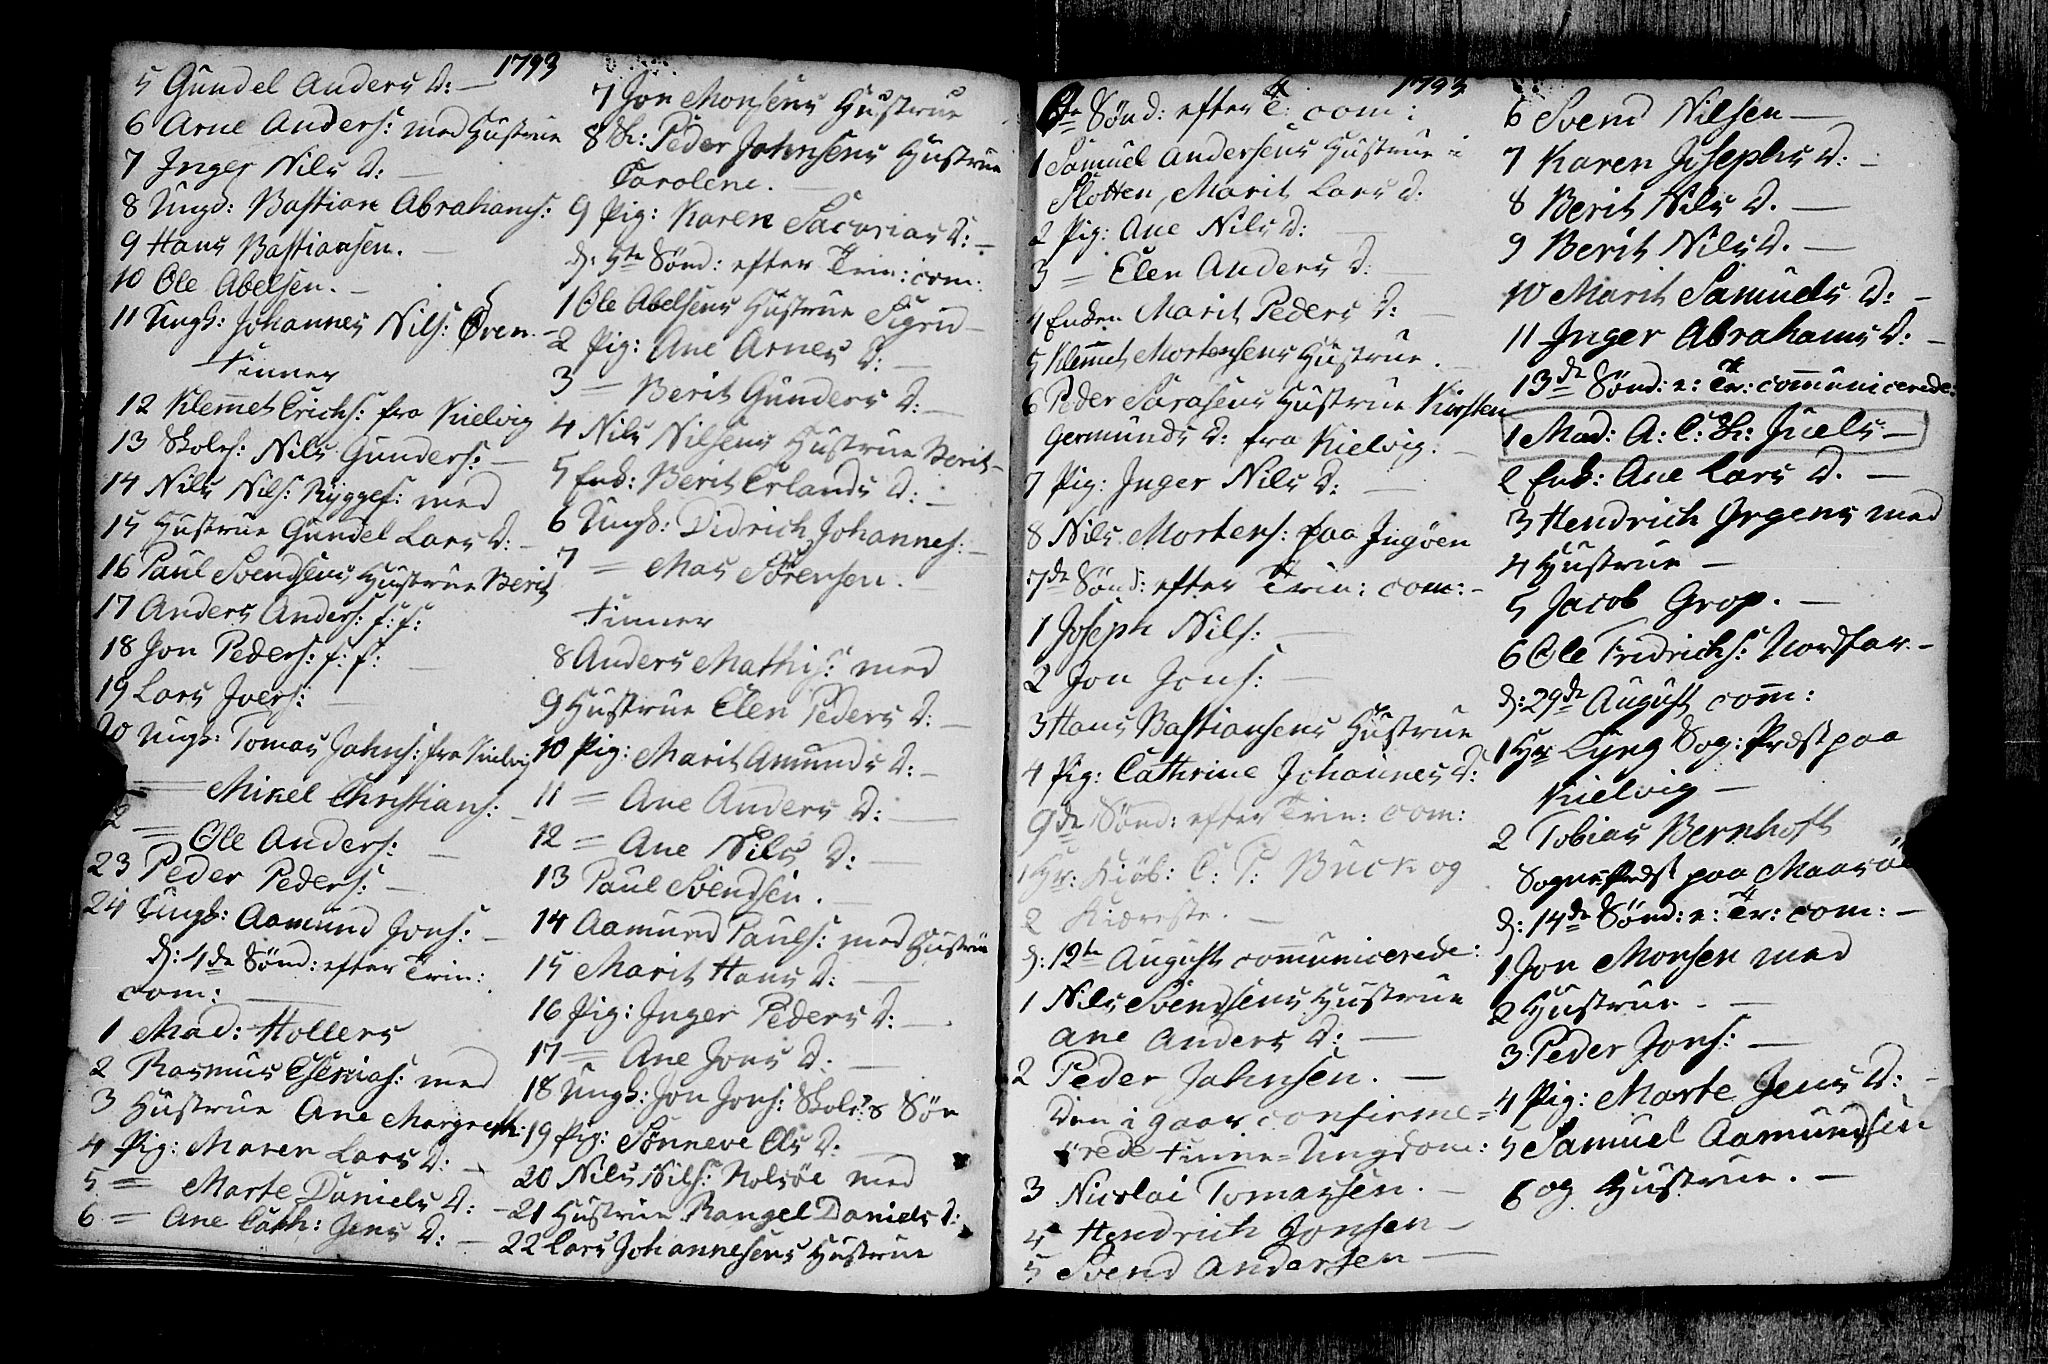 1793
5 Gundel Anders D: —
6 Arne Anders: med Hustrue
7 Inger Nils D: —
8 Ungk: Bastian Abrahams:
9 Hans Bastiansen. —
10 Ole Abelsen. —
11 Ungk: Johannes Nils: Øren. —
Finner
12 Klemet Erichs: fra Kielvig
13 Skoles: Nils Gunders: —
14 Nils Nils: Ryggef: med
15 Hustrue Gundel Lars D: —
16 Paul Svendsens Hustrue Berit
17 Anders Anders: f: f:
18 Jon Peders: f: f: —
19 Lars Joers: —
20 Ungk: Tomas Johns: fra Kielvig
— Mikel Christians: —
— Ole Anders: —
23 Peder Peders: —
24 Ungk: Aamund Jons: —
d: 4de Sønd: efter Trin:
com: —
1 Mad: Hollers
2 Rasmus Esaias: med
3 Hustrue Ane Margreth:
4 Pig: Maren Lars D: —
5 = Marte Daniels D: —
6 = Ane Cath: Jens D: —
7 Jon Monsens Hustrue
8 Sk: Peder Johnsens Hustrue
Carolene. —
9 Pig: Karen Sacarias D: —
d: 5te Sønd: efter Trin: com:
1 Ole Abelsens Hustrue Sigrid —
2 Pig: Ane Arnes D: —
3 = Berit Gunders D: —
4 Nils Nilsens Hustrue Berit —
5 Enk: Berit Erlands D: —
6 Ungk: Didrich Johannes: —
7 = Mas Sörensen. —
Finner
8 Anders Mathis: med
9 Hustrue Elen Peders D: —
10 Pig: Marit Amunds D: —
11 = Ane Anders D: —
12 = Ane Nils D: —
13 Paul Svendsen. —
14 Aamund Pauls: med Hustrue
15 Marit Hans D: —
16 Pig: Inger Peders D: —
17 = Ane Jons D: —
18 Ungk: Jon Jons: Skol:s Søn
19 Pig: Sönneve Els D: —
20 Nils Nils: Kolsöe med
21 Hustrue Rangel Daniels D:
22 Lars Johannesens Hustrue
1793
6te Sønd: efter Tr: com:
1 Samuel Andersens Hustrue i
Slotten, Marit Lars D:
2 Pig: Ane Nils D: —
3 = Elen Anders D: —
4 Enken Marit Peders D: —
5 Klemet Mortensens Hustrue. —
6 Peder Sarasens Hustrue Kirsten
Germunds D: fra Kielvig. —
7 Pig: Inger Nils D: —
8 Nils Mortens: paa Ingøen
7de Sønd: efter Trin: com: —
1 Joseph Nils: —
2 Jon Jons: —
3 Hans Bastiansens Hustrue
4 Pig: Cathrine Johannes D:
9de Sønd: efter Trin: com:
1 Hr: Kiöb: C: P: Buck og
2 Kiæreste. —
d: 12te August communicerede:
1 Nils Svendsens Hustrue
Ane Anders D: —
2 Peder Johnsen. —
Den i gaar confirme=
rede Finne=Ungdom:
3 Nicolai Tomassen. —
4 Hendrich Jonsen —
5 Svend Andersen —
6 Svend Nilsen —
7 Karen Josephs D: —
8 Berit Nils D. —
9 Berit Nils D. —
10 Marit Samuels D: —
11 Inger Abrahams D: —
13de Sønd: e: Tr: communicerede:
1 Mad: A: C: Sk: Juels —
2 Enk: Ane Lars D. —
3 Hendrich Jrgens med
4 Hustrue —
5 Jacob Grop. —
6 Ole Fredrichs: Nordfar. —
d: 29de August com:
1 Hr Lyng Sog: Præst paa
Kielvig —
2 Tobias Bernhoft
Sognepræst paa Maasöe
d: 14de Sønd: e: Tr: com: —
1 Jon Monsen med
2 Hustrue. —
3 Peder Jons: —
4 Pig: Marte Jens D: —
5 Samuel Aamundsen
6 og Hustrue. —